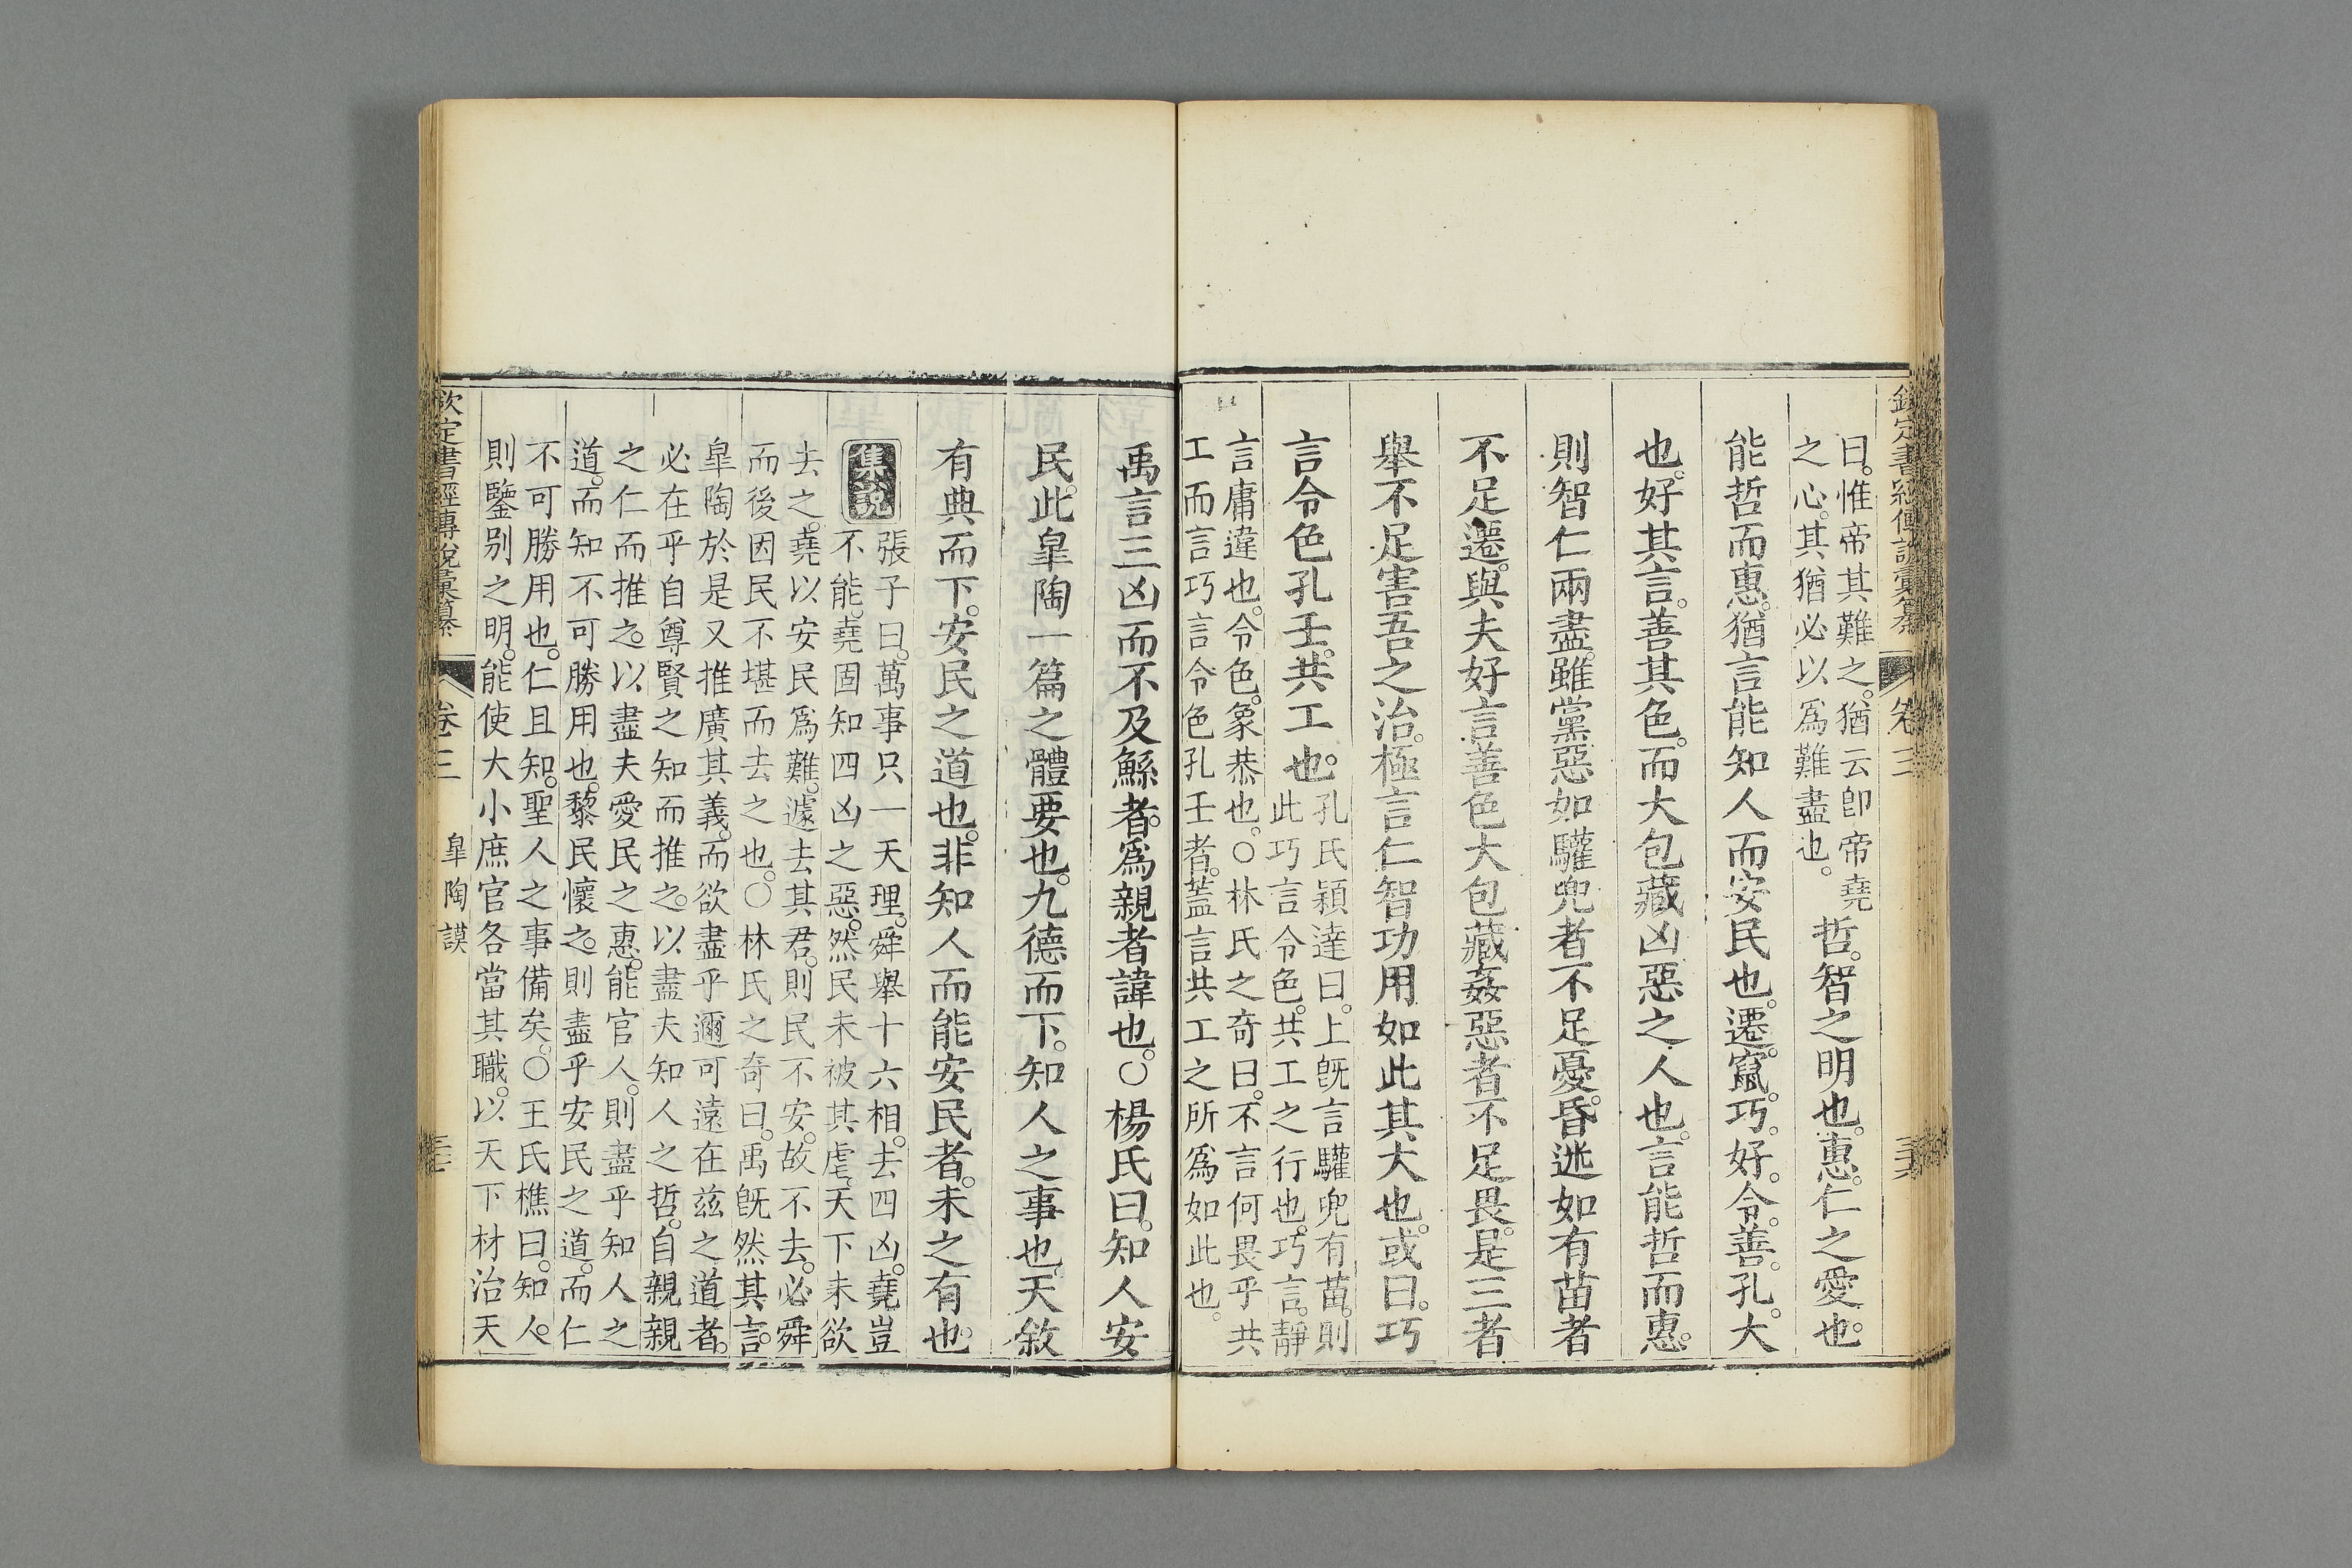 欽定書經傳說彙纂 卷三 三六
曰。惟帝其難之。猶云卽帝堯
之心。其猶必以爲難盡也。
哲。智之明也。惠。仁之愛也。
能哲而惠。猶言能知人而安民也。遷。竄。巧。好。令。善。孔。大
也。好其言。善其色。而大包藏凶惡之人也。言能哲而惠。
則智仁兩盡。雖黨惡如驩兜者不足憂。昏迷如有苗者
不足遷。與夫好言善色大包藏姦惡者不足畏。是三者
舉不足害吾之治。極言仁智功用如此其大也。或曰。巧
言令色孔壬。共工也。
孔氏穎達曰。上旣言驩兜有苗。則
此巧言令色。共工之行也。巧言。靜
言庸違也。令色。象恭也。○林氏之奇曰。不言何畏乎共
工而言巧言令色孔壬者。葢言共工之所爲如此也。
禹言三凶而不及鯀者。爲親者諱也。○楊氏曰。知人安
民。此臯陶一篇之體要也。九德而下。知人之事也。天敘
有典而下。安民之道也。非知人而能安民者。未之有也。
集說
張子曰。萬事只一天理。舜舉十六相。去四凶。堯豈
不能。堯固知四凶之惡。然民未被其虐。天下未欲
去之。堯以安民爲難。遽去其君。則民不安。故不去。必舜
而後因民不堪而去之也。○林氏之奇曰。禹旣然其言。
臯陶於是又推廣其義。而欲盡乎邇可遠在兹之道者。
必在乎自尊賢之知而推之。以盡夫知人之哲。自親親
之仁而推之。以盡夫愛民之惠。能官人。則盡乎知人之
道。而知不可勝用也。黎民懷之。則盡乎安民之道。而仁
不可勝用也。仁且知。聖人之事備矣。○王氏樵曰。知人。
則鑒别之明。能使大小庶官各當其職。以天下材治天
欽定書經傳說彙纂 卷三 臯陶謨 三七